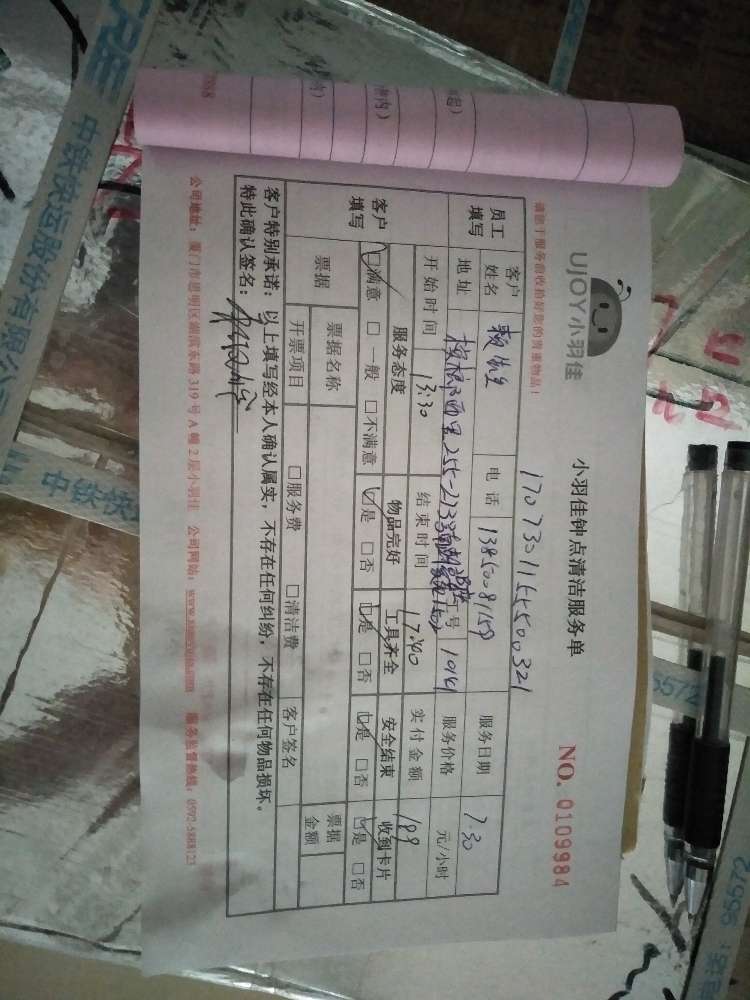 UJOY小羽佳
小羽佳钟点清洁服务单
NO. 0109984
请您于服务前收拾好您的贵重物品!
17073011545500321
员工填写
客户姓名
电话 13850081159
服务日期 7.30
地址
255-213
工号
服务价格 元/小时
开始时间 13:30
结束时间 17:40
实付金额 189
客户填写
服务态度 物品完好 工具齐全 安全结束 收到卡片
满意 一般 不满意 是 否 是 否 是 否 是 否
票据
票据名称
票据金额
开票项目 服务费 清洁费 客户签名
客户特别承诺：以上填写经本人确认属实，不存在任何纠纷，不存在任何物品损坏。
特此确认签名：
公司地址：厦门市思明区湖滨东路319号A幢2层小羽佳 公司网站： 服务监督热线：0592-5888123
中铁快运股份有限公
中铁快